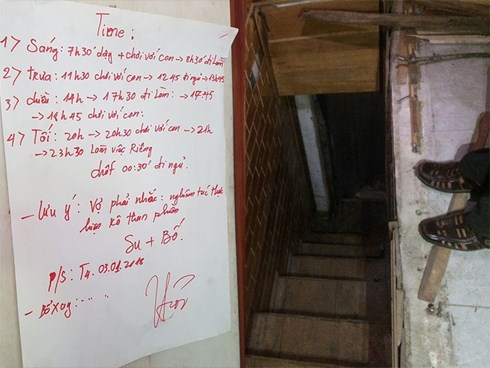 Time:
1) Sáng: 7h30' dậy + chơi với con → 8h30 đi làm
2) trưa: 11h30 chơi với con → 12h45 đi ngủ → 13h45
3) chiều: 14h → 17h30 đi làm: → 17h45
→ 18h45 chơi với con:
4) Tối: 20h → 20h30 chơi với con → 21h
→ 23h30 làm việc Riêng
chốt 00:30' đi ngủ.
- Lưu ý: Vợ phải nhắc: nghiêm túc thực
hiện kô than phiền
Su + Bố.
P/S: T4. 03.01.2018